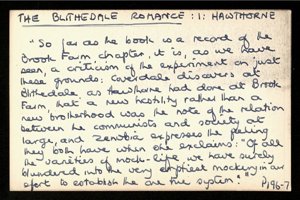 THE BLITHEDALE ROMANCE :1: HAWTHORNE
"So far as the book is a record of the
Brook Farm chapter, it is, as we have
seen, a criticism of the experiment on just
these grounds; Coverdale discovers at
Blithedale as Hawthorne had done at Brook
Farm, that a new hostility rather than a
new brotherhood was the note of the relation
between the communists and society at
large, and Zenobia expresses the feeling
they both have when she exclaims: "Of all
the varieties of mock-life, we have surely
blundered into the very emptiest mockery in our
effort to establish the one true system."""
P196-7